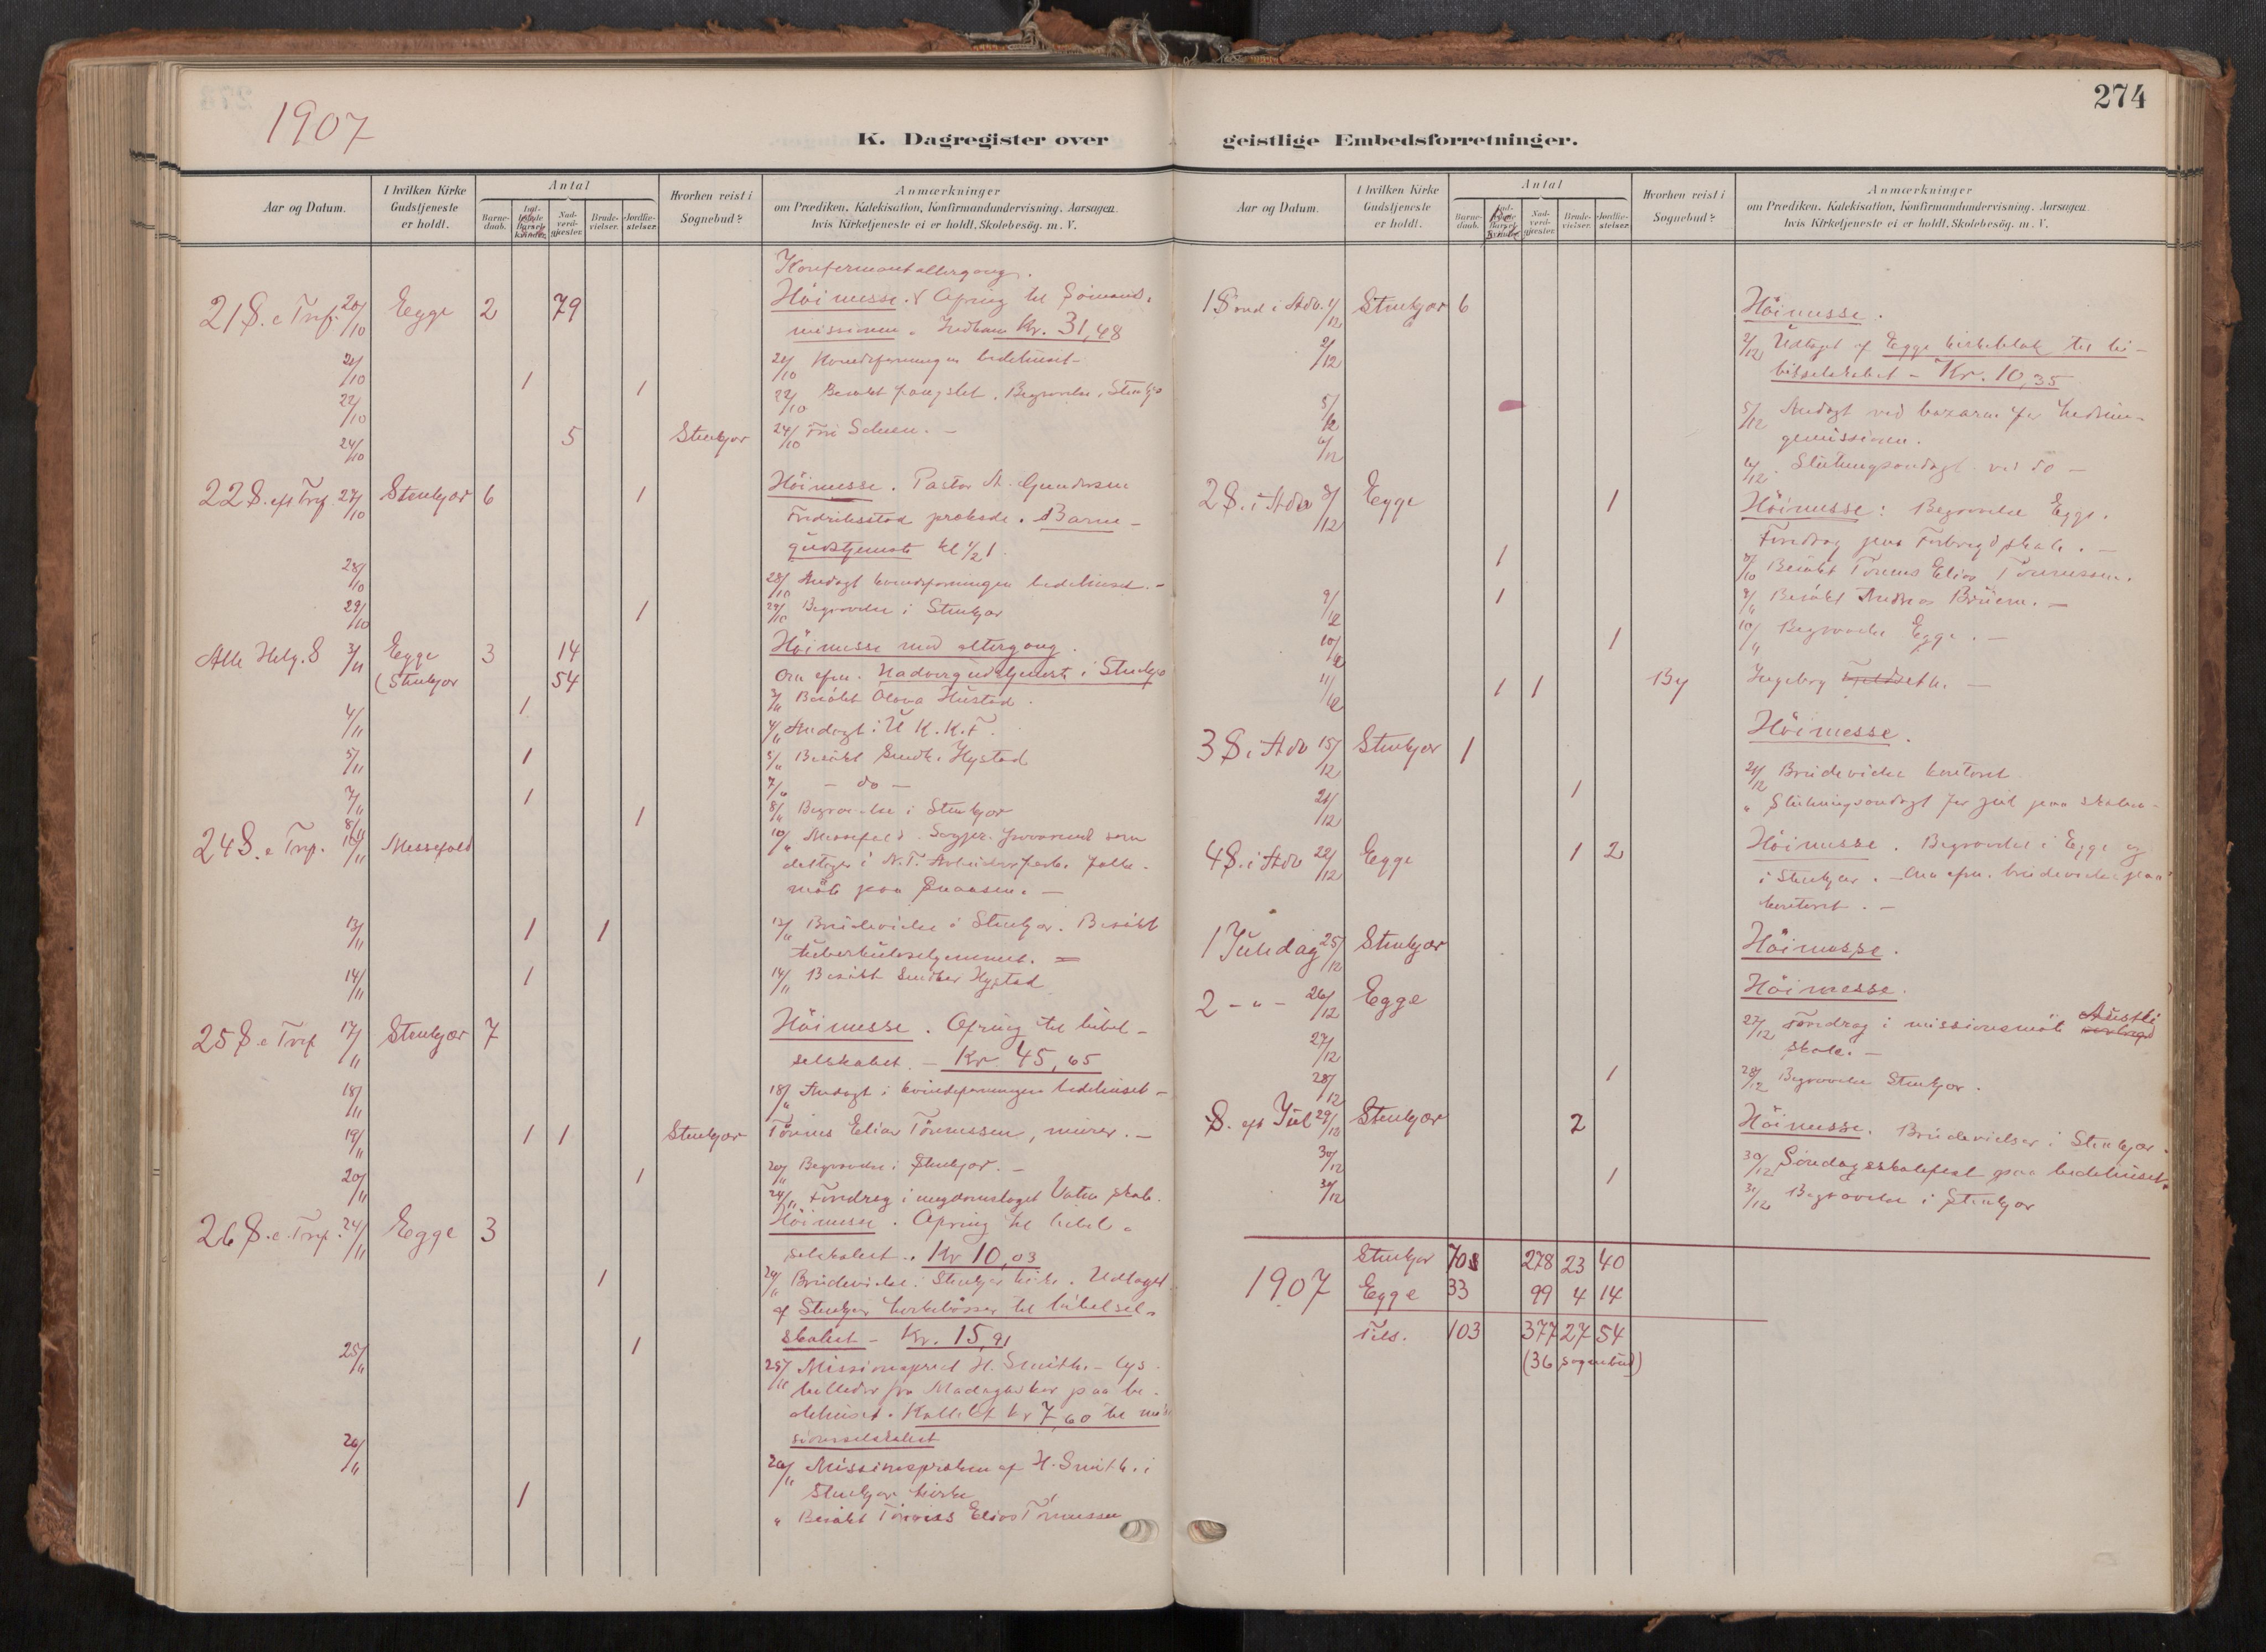 1907
K. Dagregister over
Aar og Datum.
I hvilken Kirke Gudstjeneste er holdt.
Antal
Barnedaab.
Nadverdgjester.
Brudevielser.
Jordfæstelser.
Hvorhen reist i Sognebud?
Anmærkninger
om Prædiken, Katekisation, Konfirmandundervisning, Aarsagen
hvis Kirketjeneste ei er holdt, Skolebesög. m. V.
Konfirmantaltergang.
21 S. e Tref. 20/10 Egge 2 79 Höimesse. Ofring til Sömands-
missionen. Kr. 31,48
21/10 21/10 bedehuset
22/10 1 1 22/10 Besökt Begravelse, Stenkjær
24/10 5 Stenkjær 24/10
22 S. eft Tref. 27/10 Stenkjær 6 1 Höimesse. Pastor A. Gundersen
Fredriksstad prækede. Barne-
gudstjeneste kl 1/2 1.
28/10 28/10 Andagt kvindeforeningen bedehuset. -
29/10 1 29/10 Begravelse i Stenkjær
Alle Helg. S 3/11 Egge 3 14 Höimesse med altergang.
(Stenkjær 54 Om efm. Nadvergudstjeneste i Stenkjær
1 Besökt Olava Hustad.
4/11 4/11 Andagt i U. K. K. F.
5/11 1 5/11 Besökt Hystad
7/11 1 7/11 - do -
8/11 1 8/11 Begravelse i Stenkjær
24 S. e Tref. 10/11 Messefald 10/11 Messefald. Sognepr. fraværende som
deltager i N. T. folke-
möte paa Snaasen. -
13/11 1 1 13/11 Brudevielse i Stenkjær. Besökt
tuberkulosehjemmet. =
14/11 1 14/11 Besökt Hystad
25 S. e Tref 17/11 Stenkjær 7 Höimesse. Ofring til bibel-
selskabet. - Kr 45,65
18/11 18/11 Andagt i kvindeforeningen bedehuset -
19/11 1 1 Stenkjær Tönnes Elias Tönnessen, murer. -
20/11 1 20/11 Begravelse i Stenkjær. -
24/11 Foredrag i ungdomslaget Vatne skole.
26 S. e. Tref. 24/11 Egge 3 Höimesse. Ofring til bibel-
selskabet. Kr 10,03
1 24/11 Brudevielse. Stenkjær kirke. Udtaget
af Stenkjær kirkebösser til bibelsel-
skabet - Kr. 15,91
25/11 1 25/11 Missionsprest H. Smith. - Lys-
billeder fra Madagaskar paa be-
dehuset. Kollekt kr 7,60 til mis-
sionsselskabet
26/11 26/11 Missionspræken af H. Smith i
1 Stenkjær kirke
" Besökt Tönnes Elias Tönnessen
274
geistlige Embedsforretninger.
Aar og Datum.
I hvilken Kirke Gudstjeneste er holdt.
Antal
Barnedaab.
Nadverdgjester.
Brudevielser.
Jordfæstelser.
Hvorhen reist i Sognebud?
Anmærkninger
om Prædiken, Katekisation, Konfirmandundervisning, Aarsagen
hvis Kirketjeneste ei er holdt, Skolebesög. m. V.
1 Sönd i Adv. 1/12 Stenkjær 6 Höimesse.
2/12 2/12 Udtaget af Egge kirkeblok til bi-
belselskabet - Kr. 10,35
5/12 5/12 Andagt ved bazaren for hedninge-
missionen.
6/12 6/12 Slutningsandagt ved do -
2 S. i Adv 8/12 Egge 1 Höimesse: Begravelse Egge.
Foredrag skole. -
1 Besökt Tönnes Elias Tönnessen.
9/12 1 9/" Besökt Andreas -
10/12 1 10/" Begravelse Egge. -
11/12 1 1 By Ingeborg -
3 S. i Adv 15/12 Stenkjær 1 Höimesse.
21/12 1 21/12 Brudevielse kontoret
" Slutningsandagt för jul paa skolen -
4 S. i Adv 22/12 Egge 1 2 Höimesse. Begravelse i Egge og
i Stenkjær. - Om efm. brudevielse paa
kontoret. -
1 Juledag 25/12 Stenkjær Höimesse.
2 - " - 26/12 Egge Höimesse.
27/12 27/12 Foredrag i missionsmöte
skole. -
28/12 1 28/12 Begravelse Stenkjær.
S. eft Jul 29/12 Stenkjær 2 Höimesse. Brudevielser i Stenkjær.
30/12 30/12 Söndagsskolefest paa bedehuset.
31/12 1 31/12 Begravelse i Stenkjær
Stenkjær 70 278 23 40
1907 Egge 33 99 4 14
Tils. 103 377 27 54
(36 sognebud)